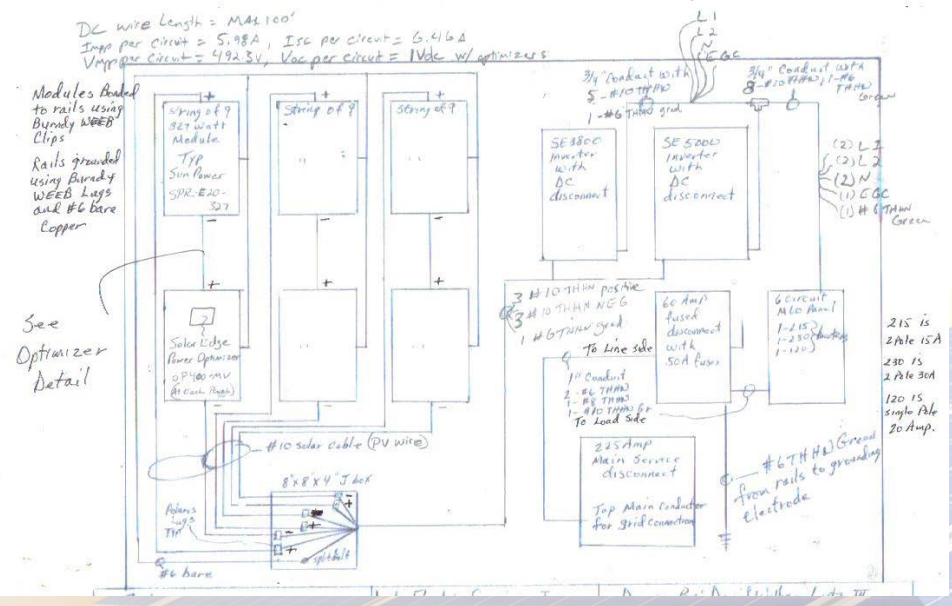 DC wire Length = MAX 100'
Impp per circuit = 5.98A, Isc per circuit = 6.46A
Vmpp per circuit = 492.3V, Voc per circuit = 1Vdc w/optimizers
Modules Bonded
to rails using
Burndy WEEB
Clips
Rails grounded
using Burndy
WEEB Lugs
and #6 bare
Copper
See
Optimizer
Detail
+
String of 9
327 watt
Module
Typ
SunPower
SPR-E20-
327
-
+
String of 9
"
-
+
String of 9
-
+
Solar Edge
Power Optimizer
OP400-MV
-
+
-
+
-
#10 Solar Cable (PV wire)
8"x8"x4" J box
Polaris
Lugs
Typ
-
+
+
-
+
splitbolt
#6 bare
L1
L2
N
EGC
3/4" Conduit with
5-#10 THHN
1-#6 THHN grnd
3/4" Conduit with
8-#10 THHN, 1-#6
THHN
Green
SE3800
Inverter
with
DC
disconnect
SE 5000
Inverter
with
DC
disconnect
(2) L1
(2) L2
(2) N
(1) EGC
(1) #6 THHN
Green
3 #10 THHN positive
3 #10 THHN NEG
1 #6 THHN grnd
To Line side
1" Conduit
2-#6 THHN
1-#8 THHN
1-#10 THHN Gr
To Load side
60 Amp
fused
disconnect
with
50A fuses
6 circuit
MLO Panel
1-215
1-230
1-120
215 is
2 Pole 15A
230 is
2 Pole 30A
120 is
single Pole
20 Amp.
225 Amp
Main Service
disconnect
Tap Main Conductor
for grid connection
#6 THHN Green
from rails to grounding
electrode